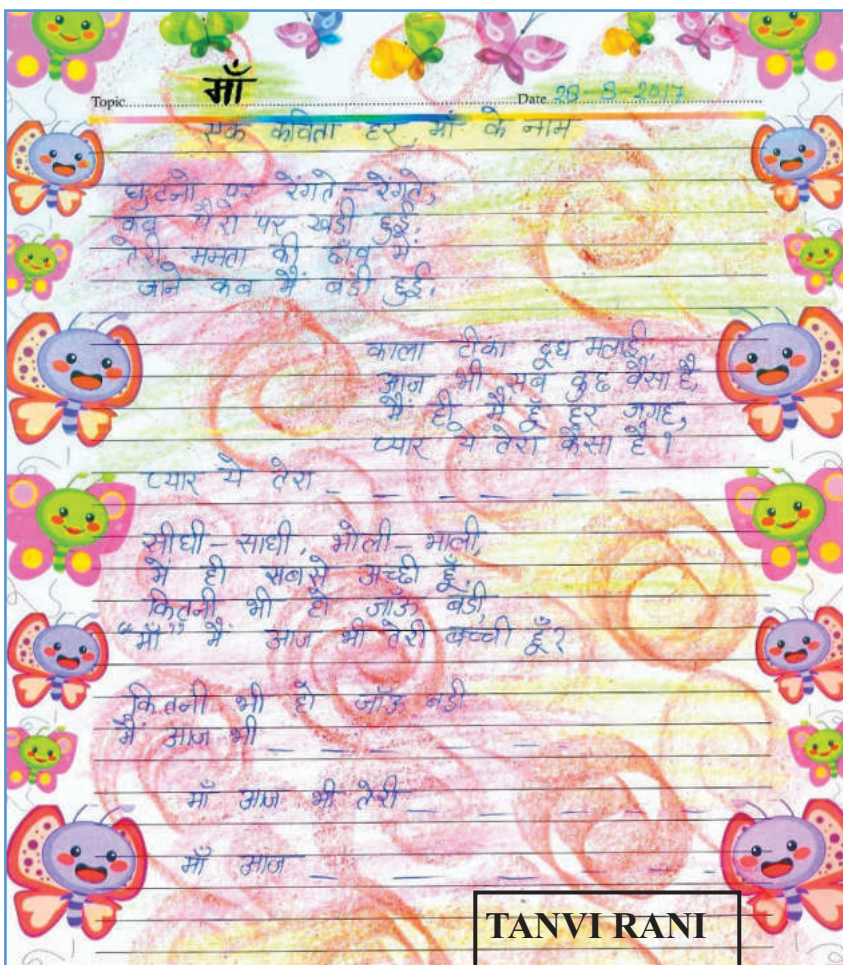 माँ
Topic Date 28-8-2017
एक कविता हर माँ के नाम
घुटनों पर रेंगते-रेंगते,
कब पैरों पर खडी हुई,
तेरी ममता की छाँव में
जाने कब मैं बडी हुई.
काला टीका दूध मलाई,
आज भी सब कुछ वैसा है,
मैं ही मैं हूँ हर जगह,
प्यार ये तेरा कैसा है?
प्यार ये तेरा _ _ _ _ _ _ _
सीधी-साधी, भोली-भाली,
में ही सबसे अच्छी हूँ,
कितनी भी हो जाँऊ बडी,
"माँ" मैं आज भी तेरी बच्ची हूँ?
कितनी भी हो जाँऊ बडी
मैं आज भी _ _ _ _ _ _ _ _ _
माँ आज भी तेरी _ _ _ _ _ _
माँ आज _ _ _ _ _ _ _ _ _
TANVI RANI